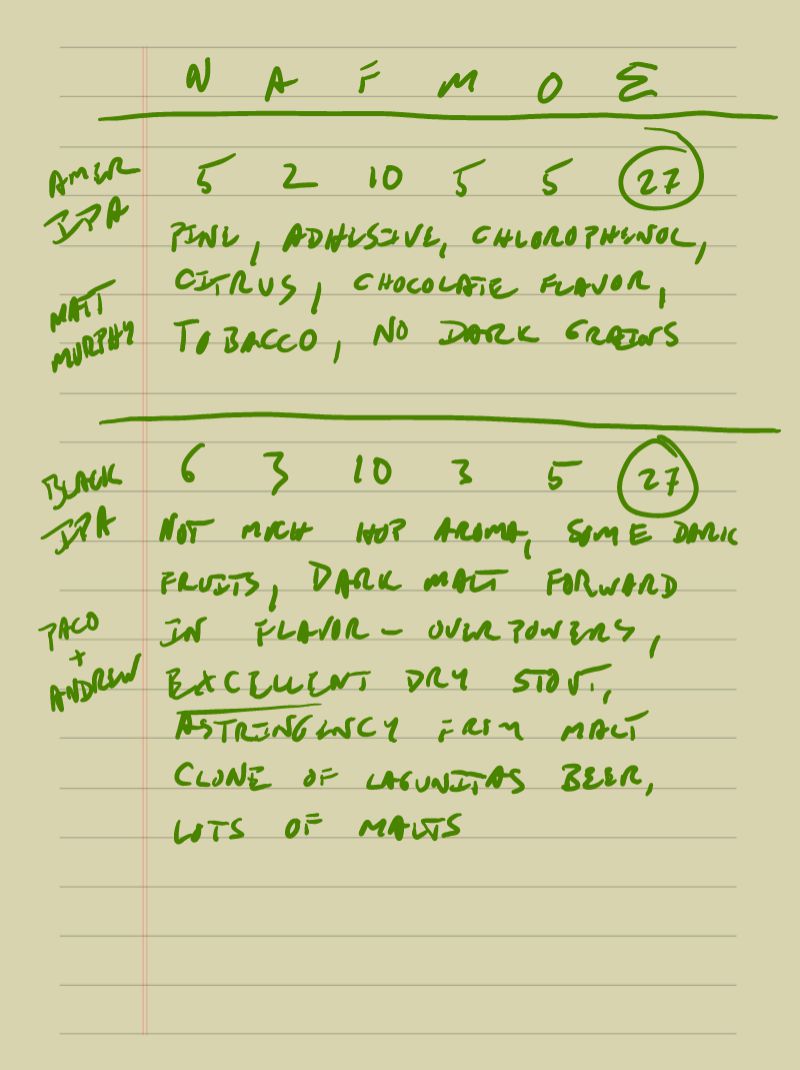 N A F M O Σ
AMER 5 2 10 5 5 27
IPA
PINE, ADHESIVE, CHLOROPHENOL,
CITRUS, CHOCOLATE FLAVOR,
MATT
MURPHY
TOBACCO, NO DARK GRAINS
BLACK 6 3 10 3 5 27
IPA NOT MUCH HOP AROMA, SOME DARK
FRUITS, DARK MALT FORWARD
PACO IN FLAVOR - OVERPOWERS,
+
ANDREW EXCELLENT DRY STOUT,
ASTRINGENCY FROM MALT
CLONE OF LAGUNITAS BEER,
LOTS OF MALTS